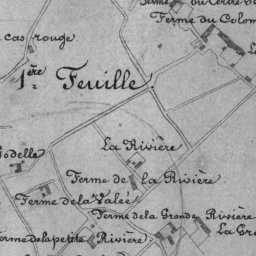 Ferme du Colom
cas rouge
1ère Feuille
La Rivière
Ferme de la Rivière
Ferme de la Valeé
Ferme de la Grande Rivière
La Gr
Ferme de la petite Rivière